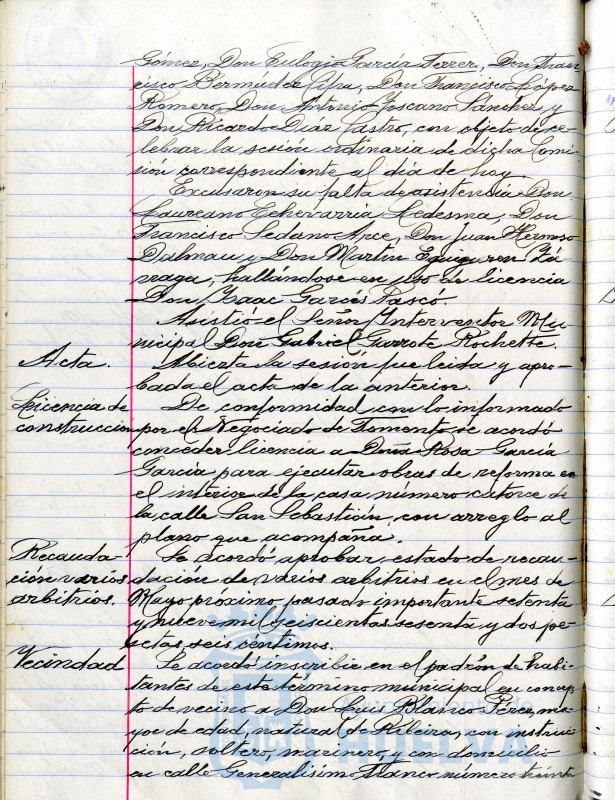 Gómez, Don Eulogio García Ferrer, Don Fran-
cisco Bermúdez Cifra, Don Francisco López
Romero, Don Antonio Toscano Sánchez y
Don Ricardo Díaz Castro, con objeto de ce-
lebrar la sesión ordinaria de dicha Comi-
sión correspondiente al día de hoy.
Excusaron su falta de asistencia Don
Laureano Echevarria Ledesma, Don
Francisco Sedano Arce, Don Juan Hermoso
Dalmau y Don Martín Eguiguren
hallándose en uso de licencia
Don Isaac Garcés Pascó.
Asistió el Señor Interventor Mu-
nicipal Don Gabriel Garrote Rochette.
Acta.
Abierta la sesión fue leida y apro-
bada el acta de la anterior.
Licencia de
construccion
De conformidad con lo informado
por el Negociado de Fomento se acordó
conceder licencia a Doña Rosa García
García para ejecutar obras de reforma en
el interior de la casa número catorce de
la calle San Sebastián, con arreglo al
plano que acompaña.
Recauda-
ción varios
arbitrios.
Se acordó aprobar estado de recau-
dación de varios arbitrios en el mes de
Mayo próximo pasado importante setenta
y nueve mil seiscientas sesenta y dos pe-
setas seis céntimos.
Vecindad
Se acordó inscribir en el padrón de habi-
tantes de este término municipal en concep-
to de vecino a Don Luis Blanco Pérez, ma-
yor de edad, natural de Ribeira, con instruc-
ción, soltero, marinero, y con domicilio
en calle Generalísimo Franco número treinta
HUELVA